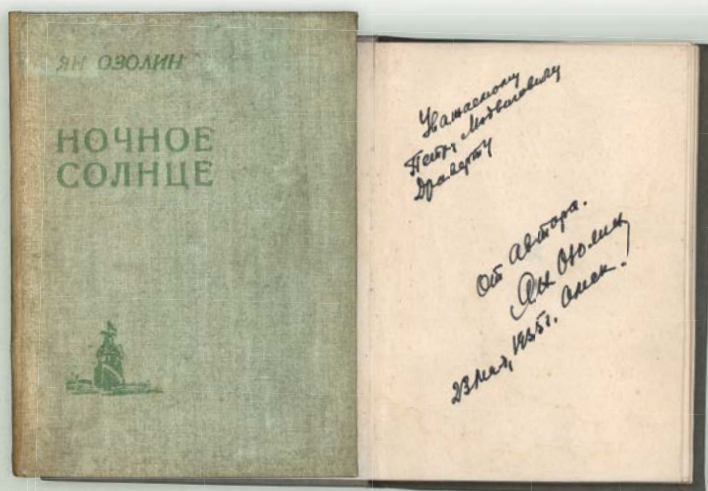 ЯН ОЗОЛИН
НОЧНОЕ
СОЛНЦЕ
Уважаемому
Петру Людвиговичу
Драверту
От автора.
Ян Озолин
23 мая, 1935г. Омск.